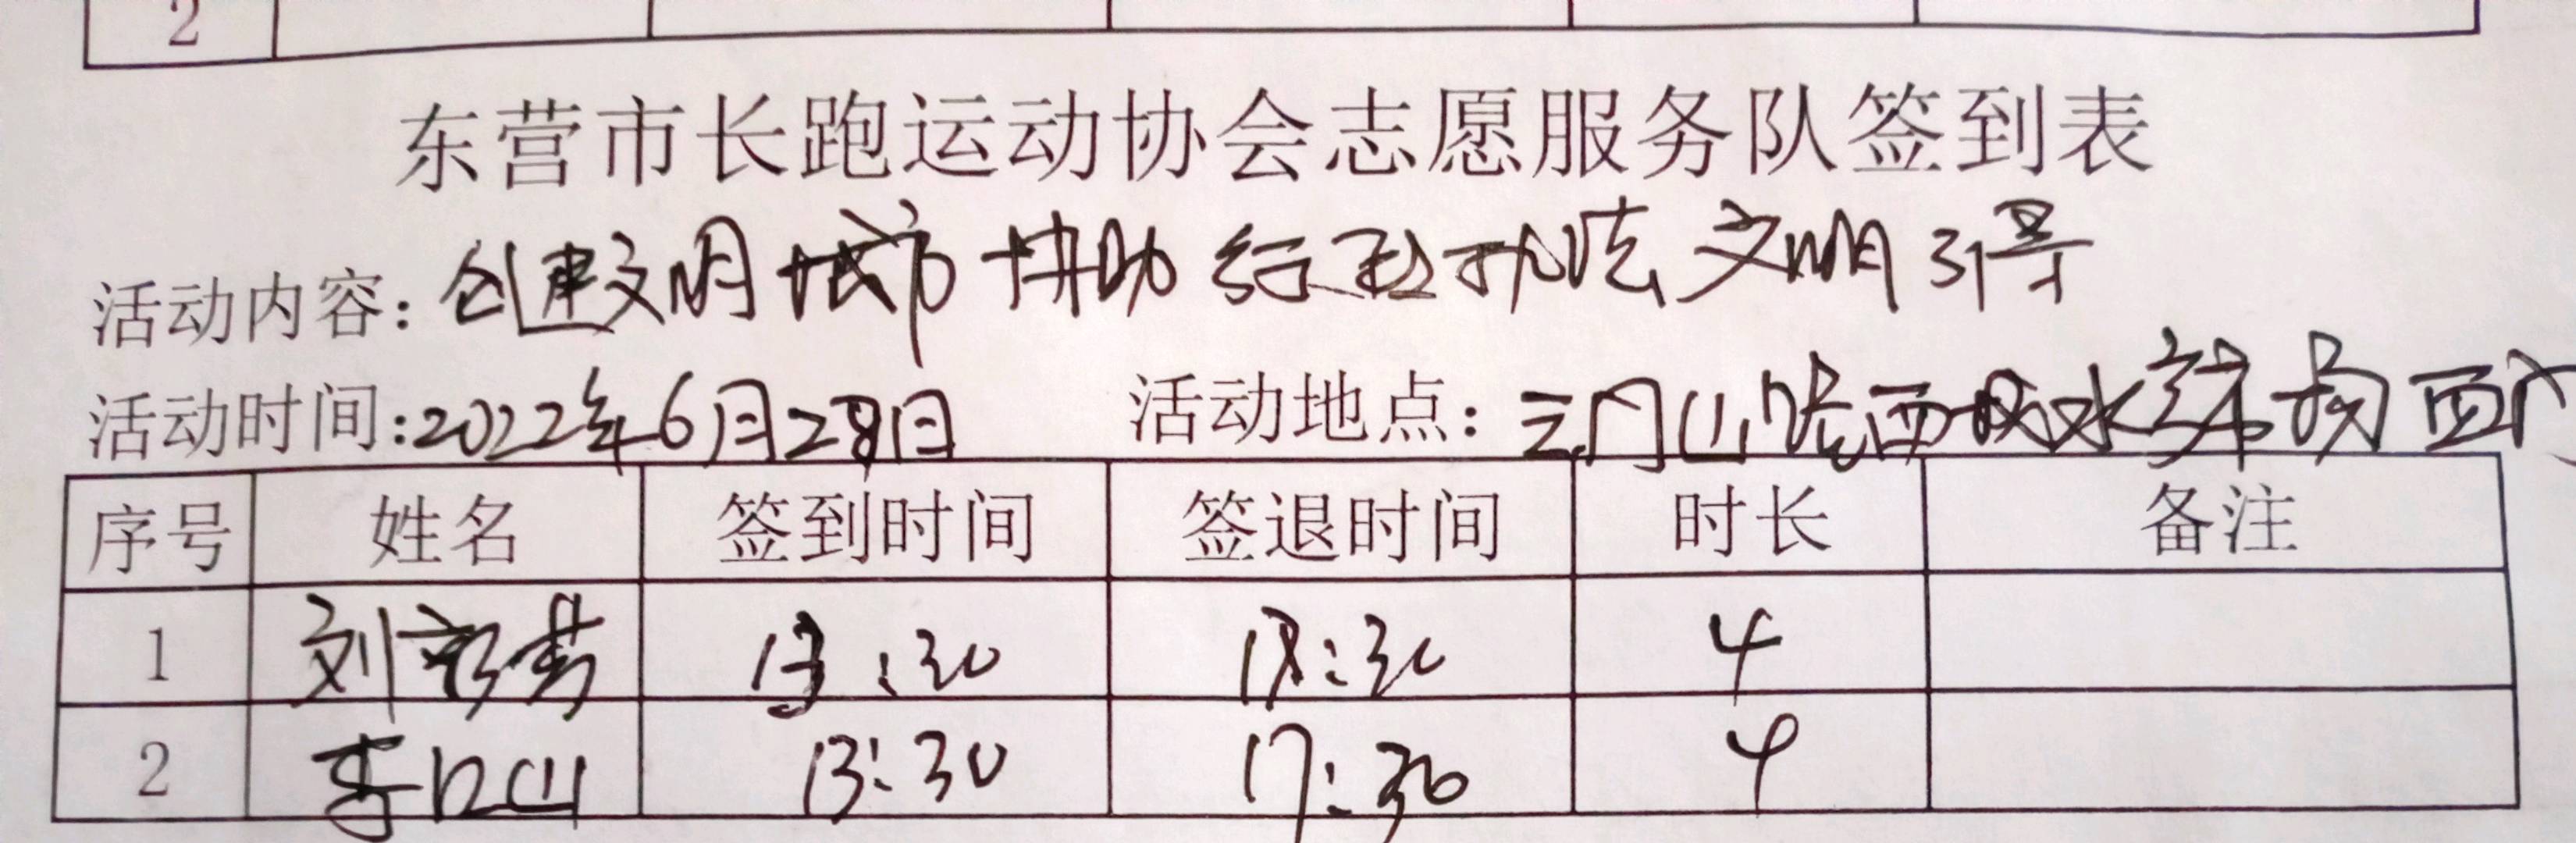 2
东营市长跑运动协会志愿服务队签到表
活动内容：创建文明城市 协助行政执法 文明引导
活动时间：2022年6月28日 活动地点：三门山路西 水 西门
序号 姓名 签到时间 签退时间 时长 备注
1 刘彦 13:30 18:30 4
2 李 山 13:30 17:30 4